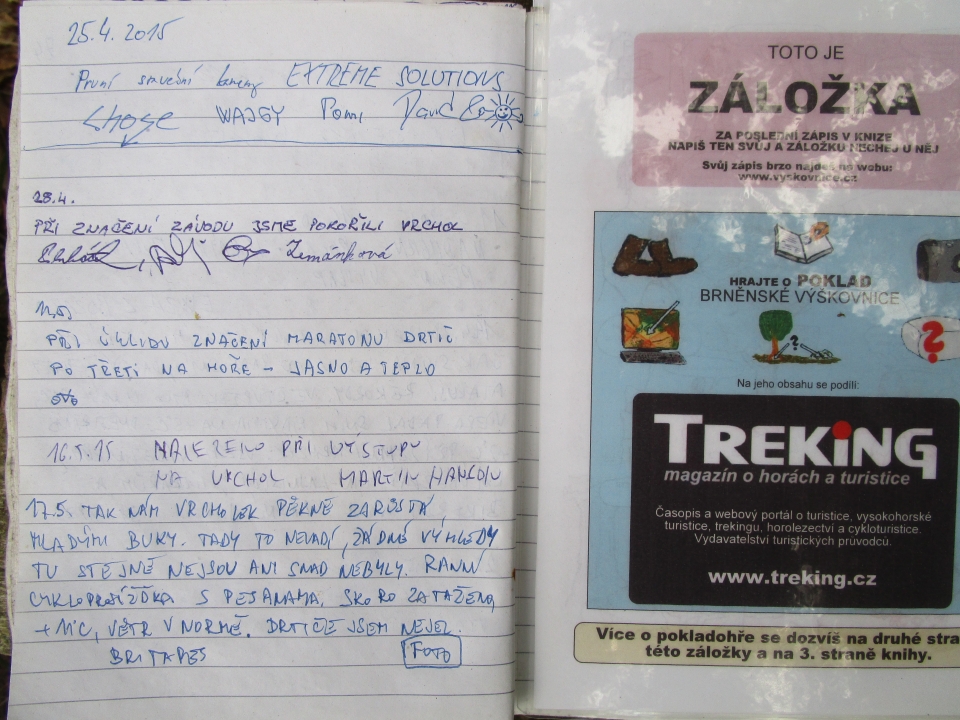 25.4.2015
První stavební kameny EXTREME SOLUTIONS
WAJGY Pomi David
28.4.
PŘI ZNAČENÍ ZÁVODU JSME POKOŘILI VRCHOL
Zemánková
PŘI ÚKLIDU ZNAČENÍ MARATONU DRTIČ
PO TŘETÍ NA HOŘE - JASNO A TEPLO
16.5.15 NALEZENO PŘI VÝSTUPU
NA VRCHOL MARTIN
17.5. TAK NÁM VRCHOLEK PĚKNĚ ZARŮSTÁ
MLADÝMI BUKY. TADY TO NEVADÍ, ŽÁDNÉ VÝHLEDY
TU STEJNĚ NEJSOU ANI SNAD NEBYLY. RANNÍ
CYKLOPROJÍŽĎKA S PEJSANAMA, SKORO ZATAŽENO,
+11°C, VÍTR V NORMĚ. DRTIČE JSEM NEJEL.
BRITAPES FOTO
TOTO JE
ZÁLOŽKA
ZA POSLEDNÍ ZÁPIS V KNIZE
NAPIŠ TEN SVŮJ A ZÁLOŽKU NECHEJ U NĚJ
Svůj zápis brzo najdeš na webu:
www.vyskovnice.cz
HRAJTE O POKLAD
BRNĚNSKÉ VÝŠKOVNICE
?
?
Na jeho obsahu se podílí:
TREKING
magazín o horách a turistice
Časopis a webový portál o turistice, vysokohorské
turistice, trekingu, horolezectví a cykloturistice.
Vydavatelství turistických průvodců.
www.treking.cz
Více o pokladohře se dozvíš na druhé stra
této záložky a na 3. straně knihy.